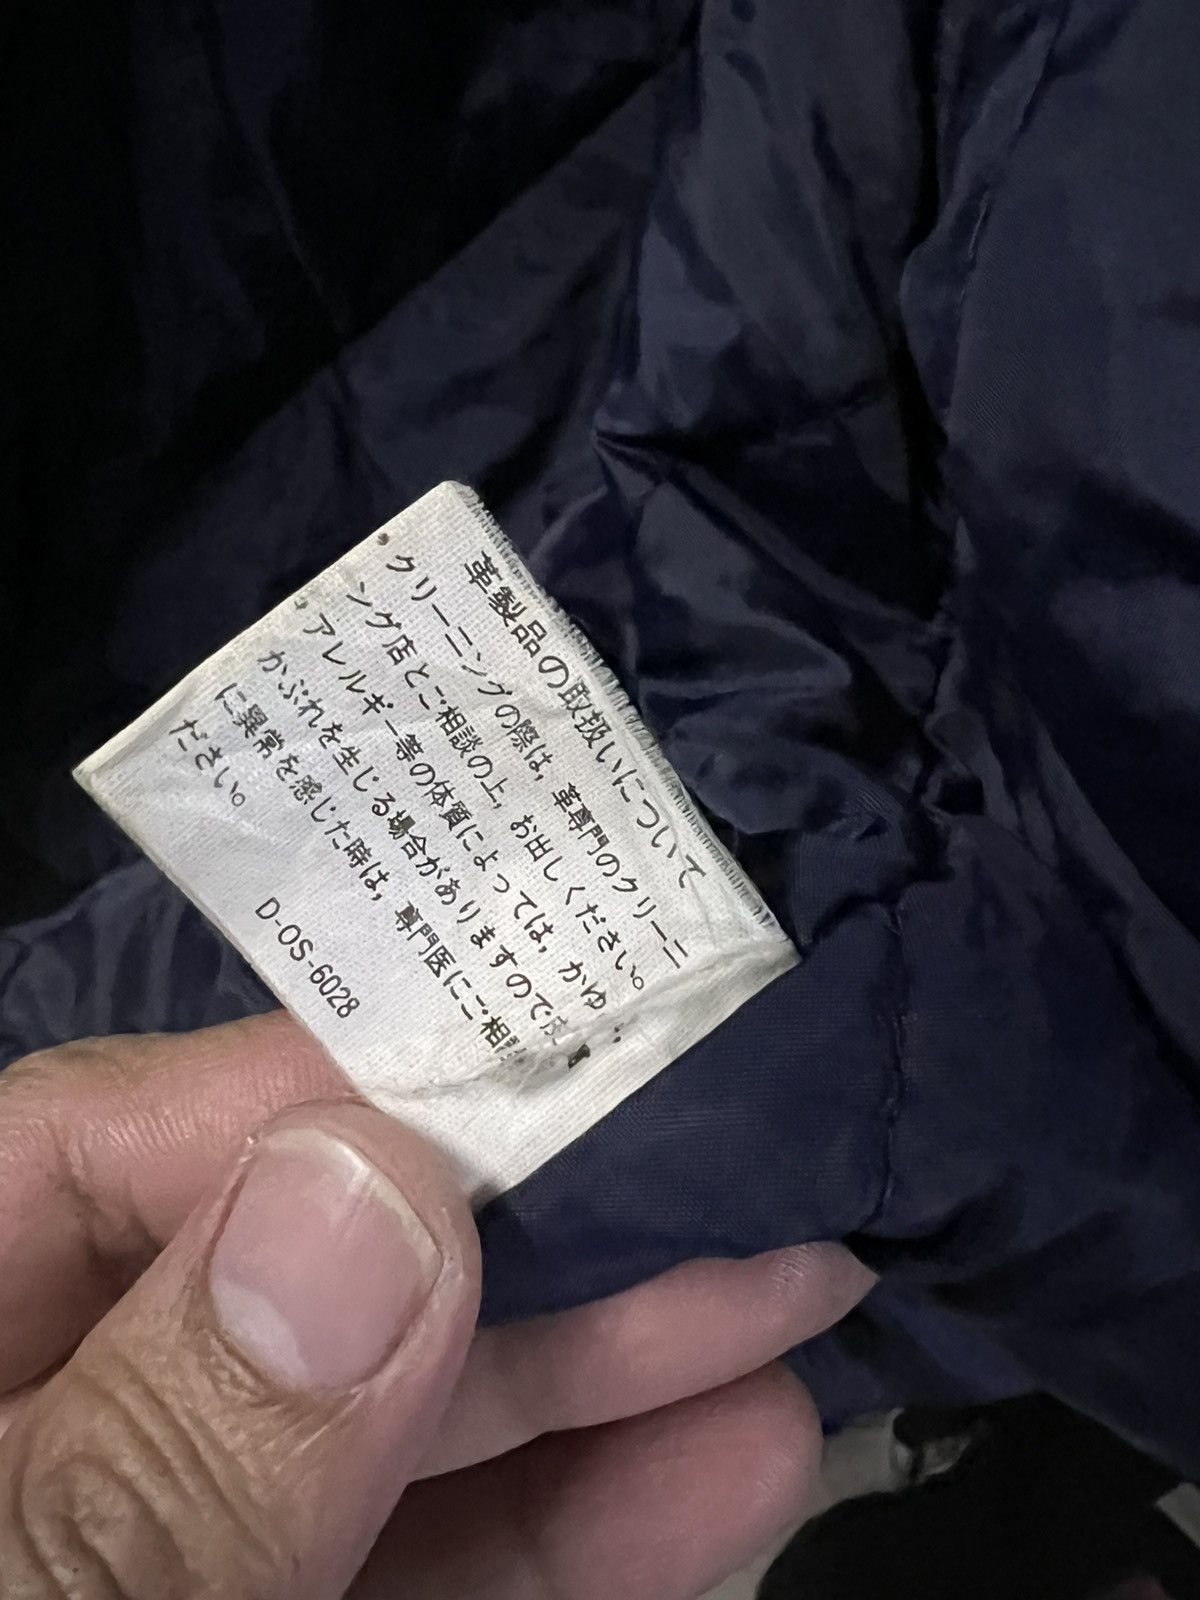 革製品の取扱いについて
・クリーニングの際は，革専門のクリーニ
ング店とご相談の上，お出しください。
・アレルギー等の体質によっては，かゆ
かぶれを生じる場合がありますので
に異常を感じた時は，専門医にご相
ださい。
D-OS-6028